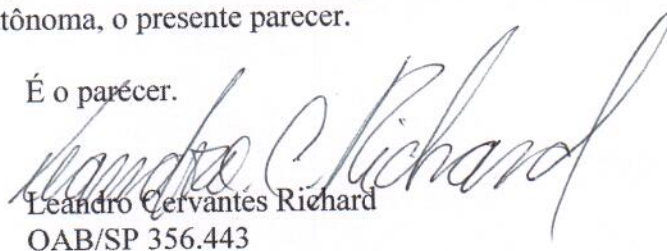 tônoma, o presente parecer.
É o parecer.
Leandro C. Richard
Leandro Cervantes Richard
OAB/SP 356.443